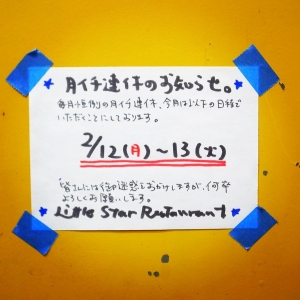 月イチ連休のお知らせ。
毎月恒例の月イチ連休、今月は以下の日程で
いただくことにしております。
2/12(月)~13(火)
皆さんには御迷惑をおかけしますが、何卒
よろしくお願いします。
Little Star Restaurant